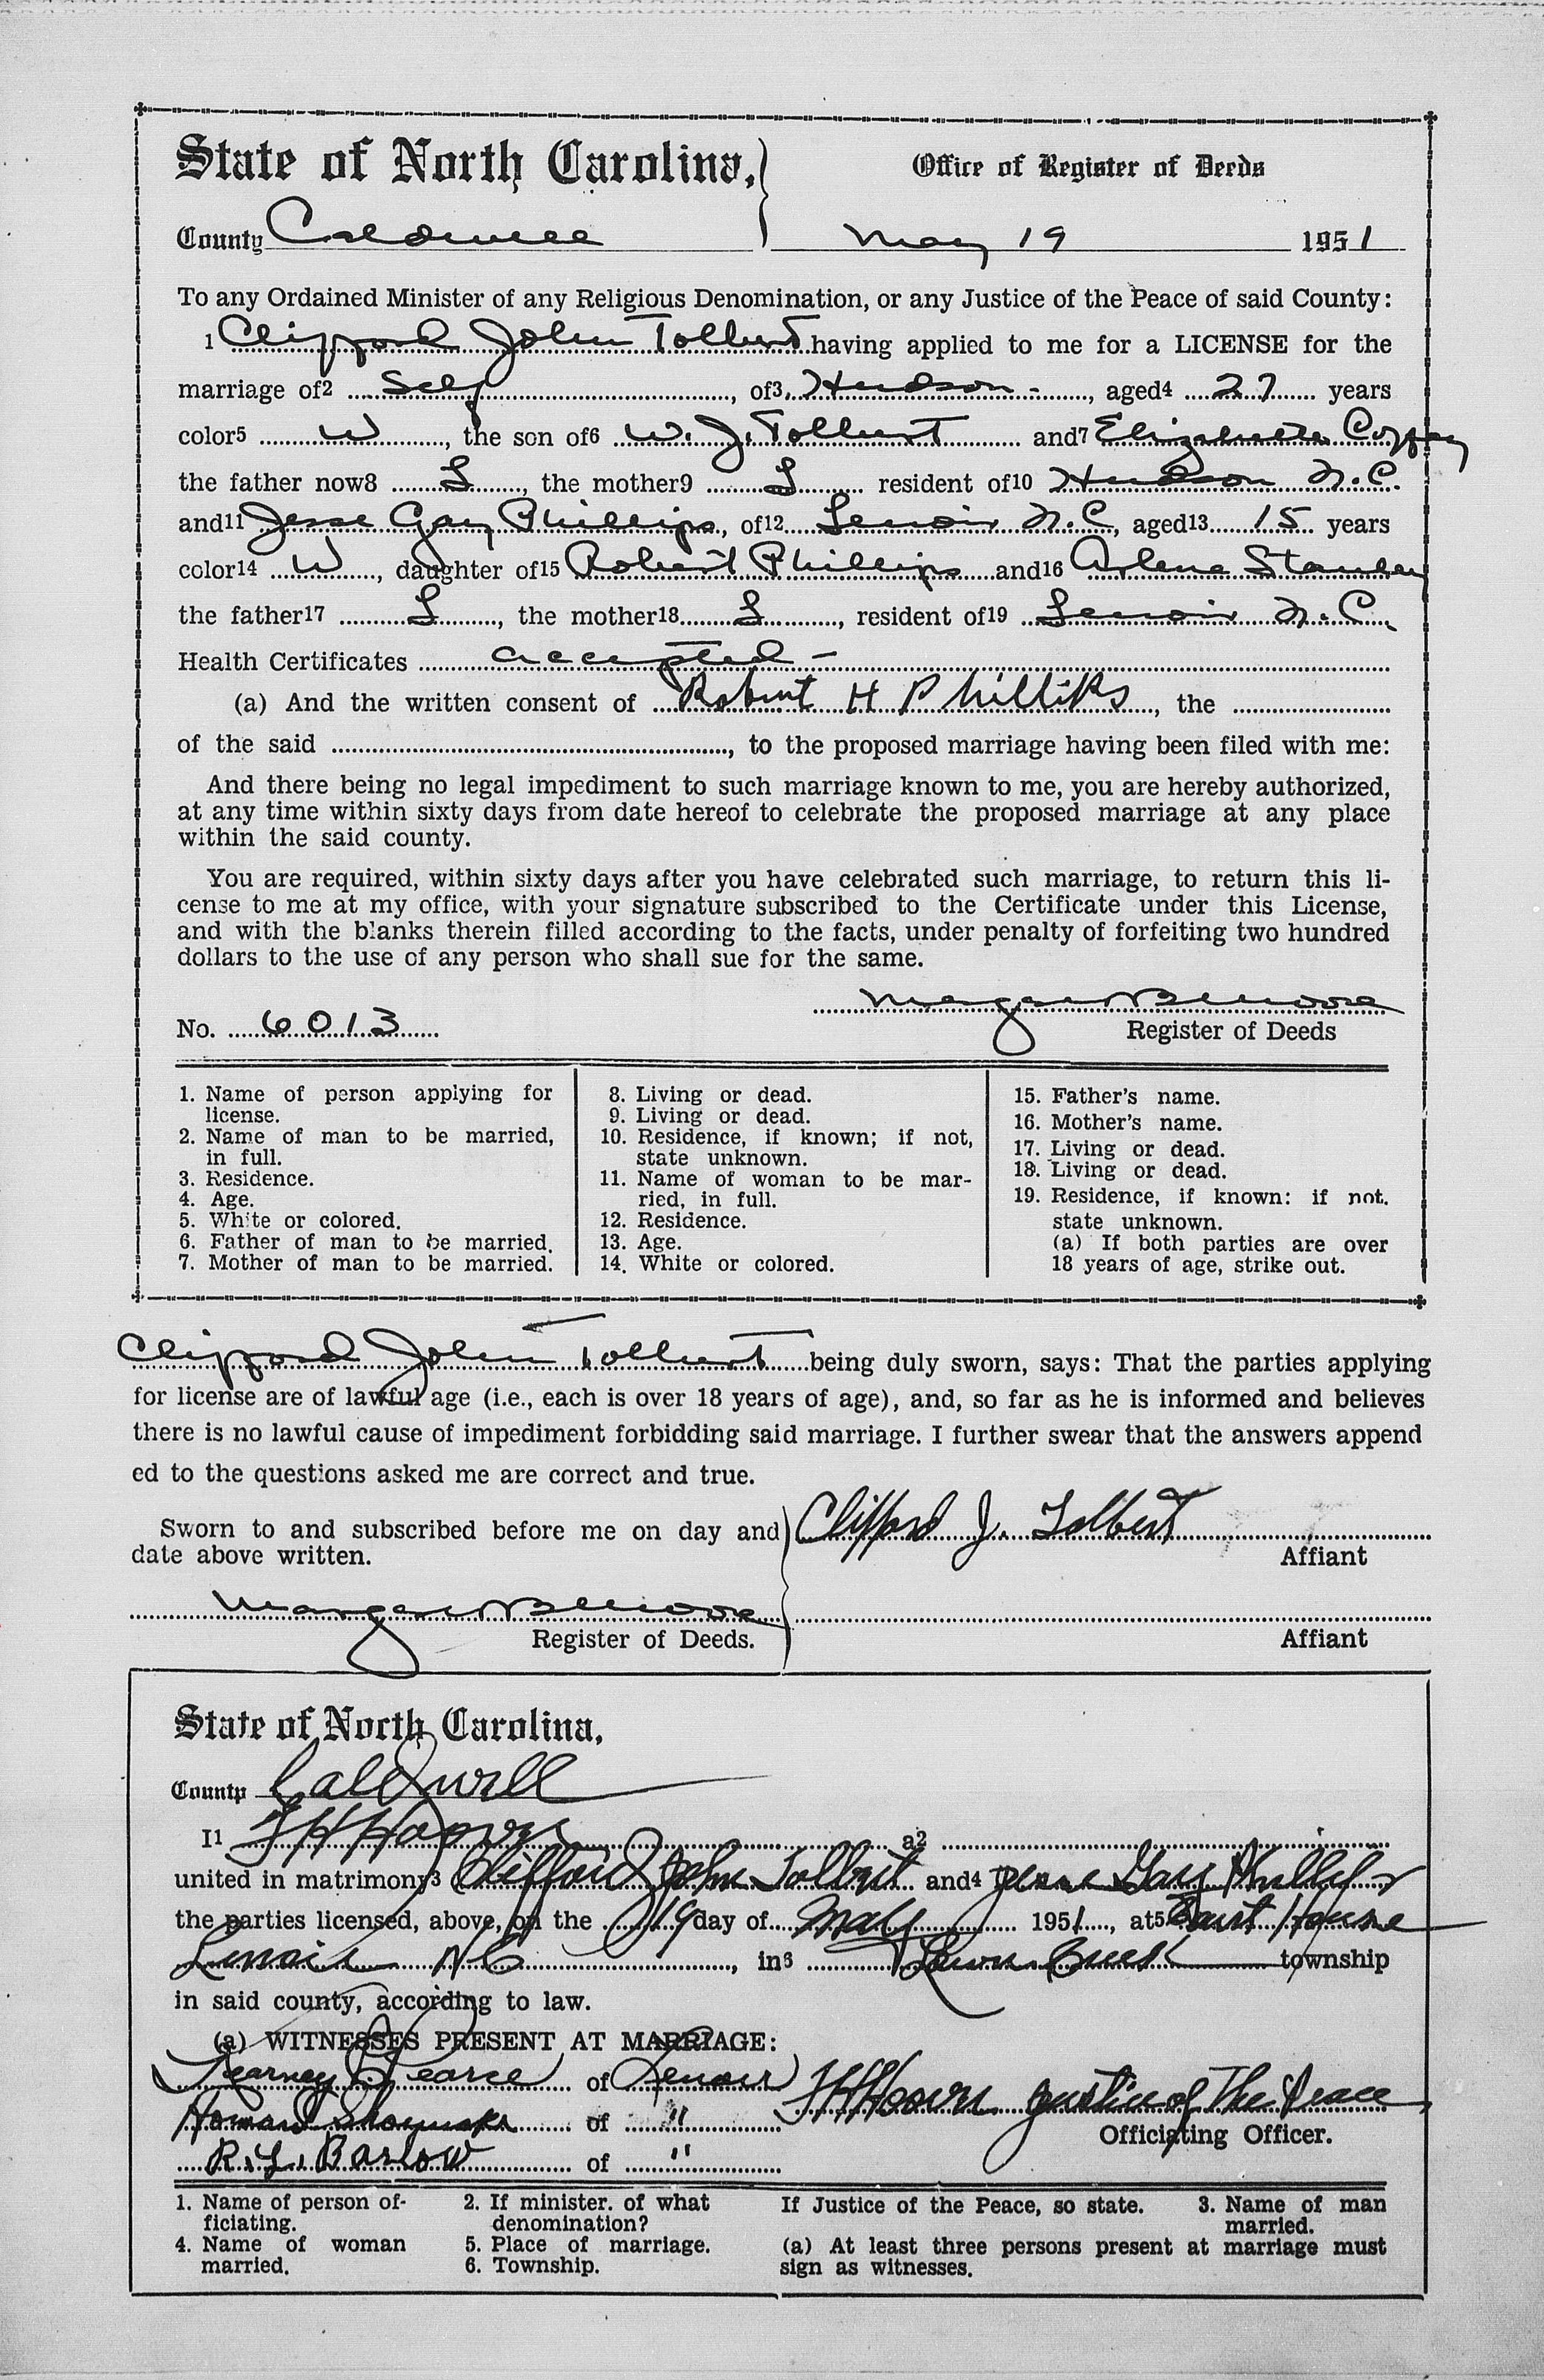 State of North Carolina,
Office of Register of Deeds
County Caldwell May 19 1951
To any Ordained Minister of any Religious Denomination, or any Justice of the Peace of said County:
1 Clifford John Tolbert having applied to me for a LICENSE for the
marriage of2 Self, of3 Hudson -, aged4 27 years
color5 W, the son of6 W. J. Tolbert and7 Elizabeth Coffey
the father now8 L, the mother9 L resident of10 Hudson N.C.
and11 Jesse Gay Phillips, of12 Lenoir N.C, aged13 15 years
color14 W, daughter of15 Robert Phillips and16 Arlene Stanley
the father17 L, the mother18 L, resident of19 Lenoir N.C.
Health Certificates accepted -
(a) And the written consent of Robert H Phillips, the
of the said, to the proposed marriage having been filed with me:
And there being no legal impediment to such marriage known to me, you are hereby authorized,
at any time within sixty days from date hereof to celebrate the proposed marriage at any place
within the said county.
You are required, within sixty days after you have celebrated such marriage, to return this li-
cense to me at my office, with your signature subscribed to the Certificate under this License,
and with the blanks therein filled according to the facts, under penalty of forfeiting two hundred
dollars to the use of any person who shall sue for the same.
No. 6013
Register of Deeds
1. Name of person applying for
license.
2. Name of man to be married,
in full.
3. Residence.
4. Age.
5. White or colored.
6. Father of man to be married.
7. Mother of man to be married.
8. Living or dead.
9. Living or dead.
10. Residence, if known; if not,
state unknown.
11. Name of woman to be mar-
ried, in full.
12. Residence.
13. Age.
14. White or colored.
15. Father's name.
16. Mother's name.
17. Living or dead.
18. Living or dead.
19. Residence, if known: if not.
state unknown.
(a) If both parties are over
18 years of age, strike out.
Clifford John Tolbert being duly sworn, says: That the parties applying
for license are of lawful age (i.e., each is over 18 years of age), and, so far as he is informed and believes
there is no lawful cause of impediment forbidding said marriage. I further swear that the answers append
ed to the questions asked me are correct and true.
Sworn to and subscribed before me on day and
date above written.
Clifford J. Tolbert
Affiant
Register of Deeds.
Affiant
State of North Carolina,
County Caldwell
I1 a2
united in matrimony3 Clifford John Tolbert and4 Gay Phillips
the parties licensed, above, on the 19 day of May 1951, at5 Court House
Lenoir N C, in6 Lower Creek township
in said county, according to law.
(a) WITNESSES PRESENT AT MARRIAGE:
Pearce of Lenoir
Justice of The Peace
Howard of "
Officiating Officer.
R. L. Barlow of "
1. Name of person of-
ficiating.
2. If minister. of what
denomination?
If Justice of the Peace, so state.
3. Name of man
married.
4. Name of woman
married.
5. Place of marriage.
6. Township.
(a) At least three persons present at marriage must
sign as witnesses.